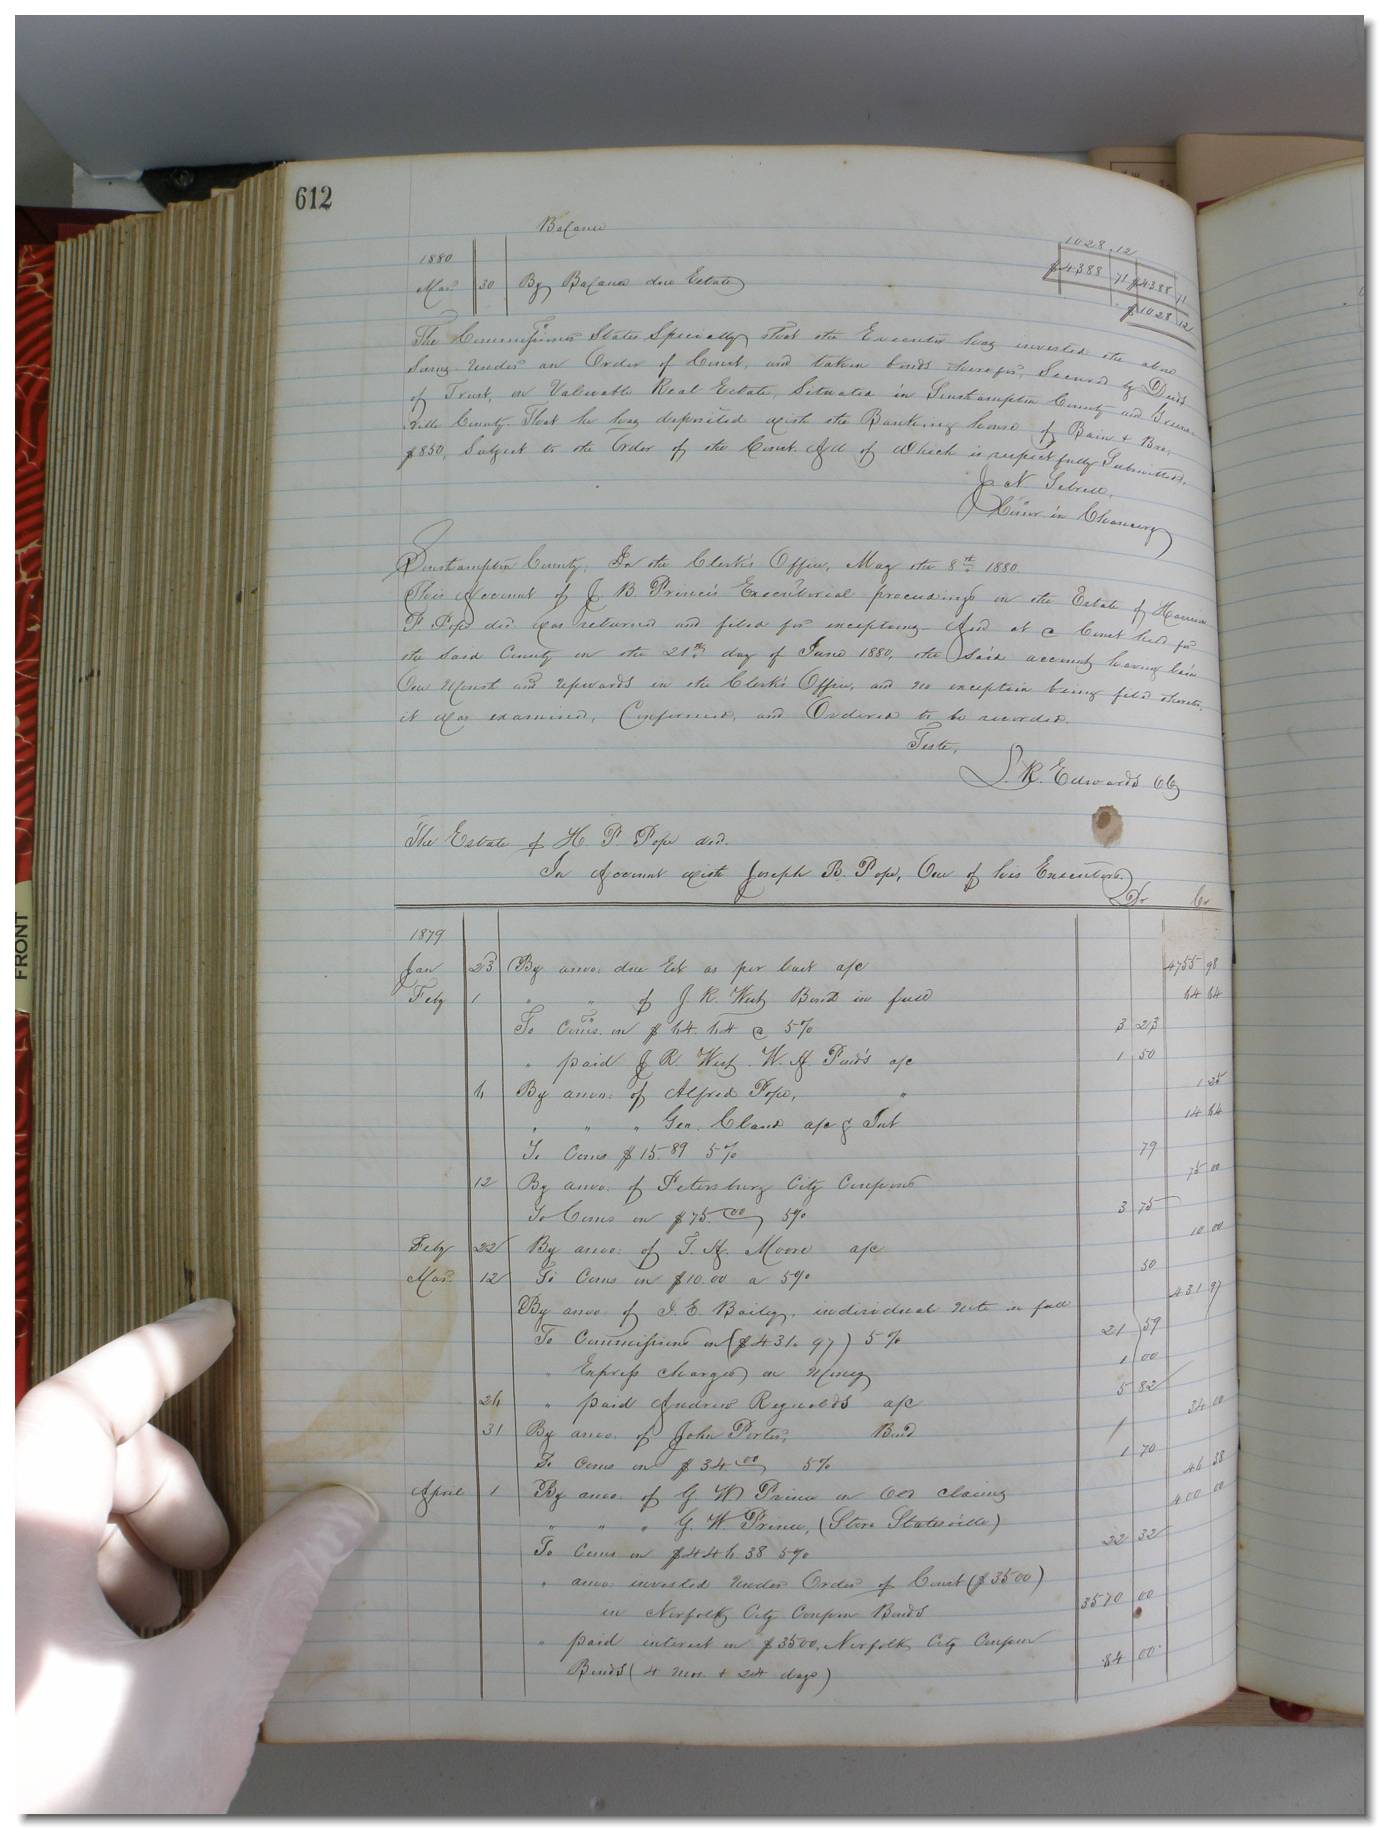 612
Balance 1028.12
1880 $4388 71 $4388 71
Mar 30 By Balance due Estate $1028 12
The Commissioner States Specially that the Executor has invested the above
Sums under an Order of Court, and taken bonds therefor, Secured by Deeds
of Trust, on Valuable Real Estate, Situated in Southampton County and Greens-
ville County. That he has deposited with the Banking house of Bain & Bro,
$850, Subject to the Order of the Court. All of which is respectfully Submitted.
J N Sebrell,
Comr in Chancery
Southampton County, In the Clerk's Office, May the 8th 1880
This Account of J. B. Prince's Executorial proceedings on the Estate of Harrison
P Pope decd was returned and filed for exceptions. And at a Court held for
the said County on the 21st day of June 1880, the said account having lain
One Month and upwards in the Clerk's Office, and no exception being filed thereto,
it was examined, Confirmed, and Ordered to be recorded.
Teste,
L. R. Edwards Clk
The Estate of H. P. Pope decd.
In Account with Joseph B. Pope, One of his Executors.
Dr Cr
1879
Jan 23 By amo. due Est as per last a/c 4755 98
Feby 1 " " of J. R. West Bond in full 64 64
To Coms. on $64.64 @ 5% 3 23
" paid J R. West. W. A. a/c 1 50
6 By amo. of Alfred Pope, " 1 25
" " " Geo. Claud a/c & Int 14 64
To Coms $15.89 5% 79
12 By amo. of Petersburg City Coupons 75 00
To Coms on $75.00 5% 3 75
Feby 22 By amo. of T. A. Moore a/c 10 00
Mar. 12 To Coms on $10.00 a 5% 50
By amo. of J. E. Bailey, individual note in full 431 97
To Commissions on ($431.97) 5% 21 59
" Express charges on Money 1 00
26 " paid Andrew Reynolds a/c 5 82
31 By amo. of John Porter, Bond 34 00
To Coms on $34.00 5% 1 70
April 1 By amo. of G W Prince on old claims 46 38
" " " G. W. Prince, (Store Statesville) 400 00
To Coms on $446 38 5% 22 32
" amo. invested under Order of Court ($3500)
in Norfolk City Coupon Bonds 3570 00
" paid interest on $3500, Norfolk City Coupon
Bonds (4 mos. + 24 days) 84 00
FRONT